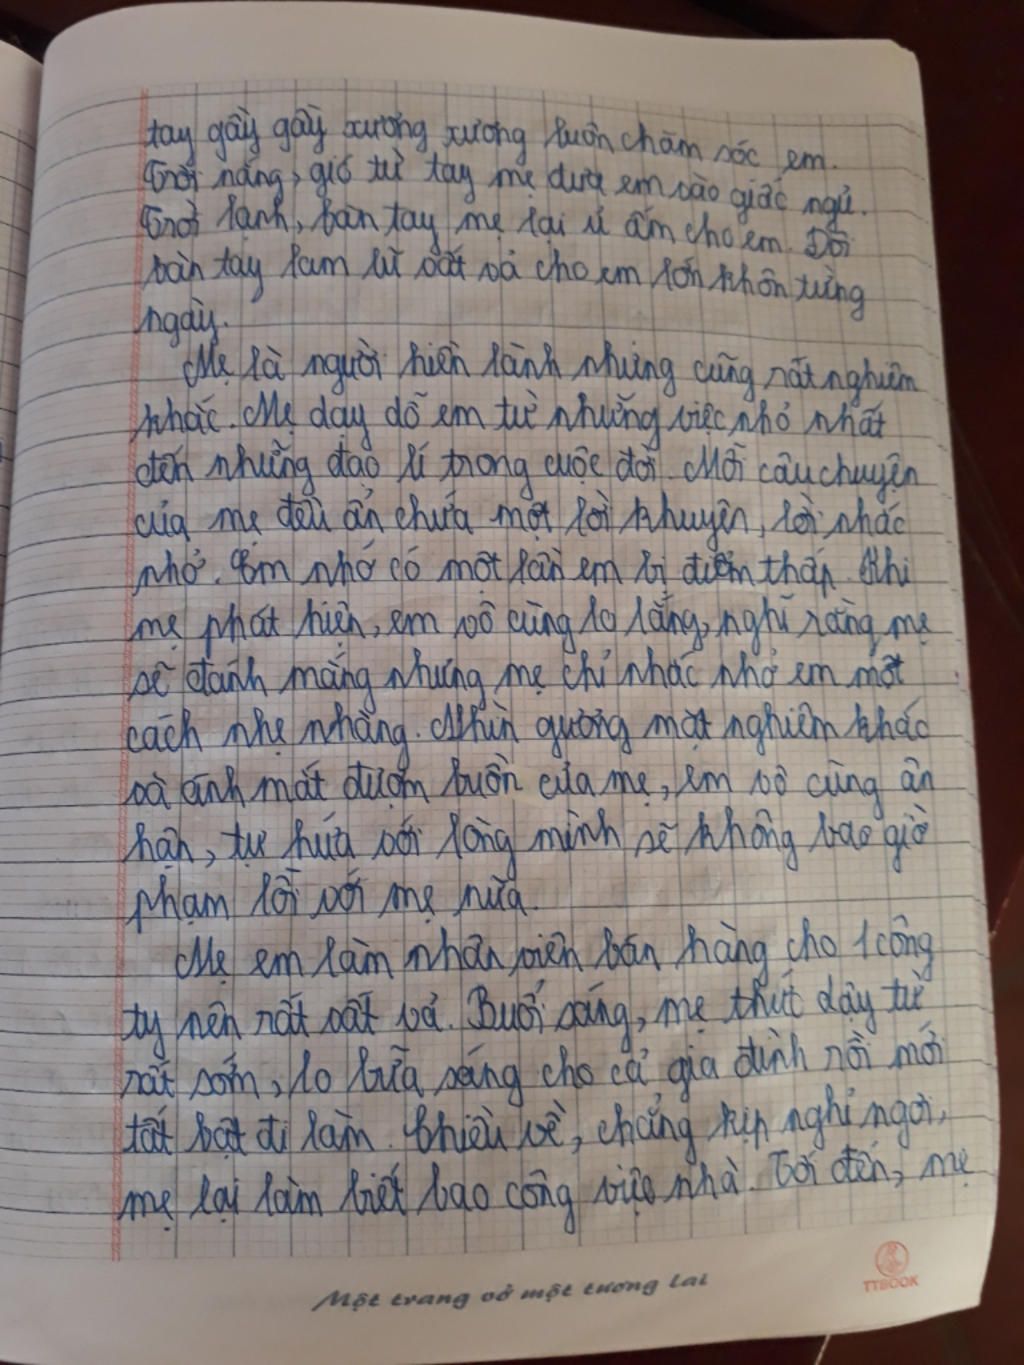 tay gầy gầy xương xương luôn chăm sóc em.
Trời nắng, gió từ tay mẹ đưa em vào giấc ngủ.
Trời lạnh, bàn tay mẹ lại ủ ấm cho em. Đôi
bàn tay lam lũ vất vả cho em lớn khôn từng
ngày.
Mẹ là người hiền lành nhưng cũng rất nghiêm
khắc. Mẹ dạy dỗ em từ những việc nhỏ nhất
đến những đạo lí trong cuộc đời. Mỗi câu chuyện
của mẹ đều ẩn chứa một lời khuyên, lời nhắc
nhở. Em nhớ có một lần em bị điểm thấp. Khi
mẹ phát hiện, em vô cùng lo lắng, nghĩ rằng mẹ
sẽ đánh mắng nhưng mẹ chỉ nhắc nhở em một
cách nhẹ nhàng. Nhìn gương mặt nghiêm khắc
và ánh mắt đượm buồn của mẹ, em vô cùng ân
hận, tự hứa với lòng mình sẽ không bao giờ
phạm lỗi với mẹ nữa.
Mẹ em làm nhân viên bán hàng cho 1 công
ty nên rất vất vả. Buổi sáng, mẹ thức dậy từ
rất sớm, lo bữa sáng cho cả gia đình rồi mới
tất bật đi làm. Chiều về, chẳng kịp nghỉ ngơi,
mẹ lại làm biết bao công việc nhà. Tối đến, mẹ
Một trang vở một tương lai
TTBOOK